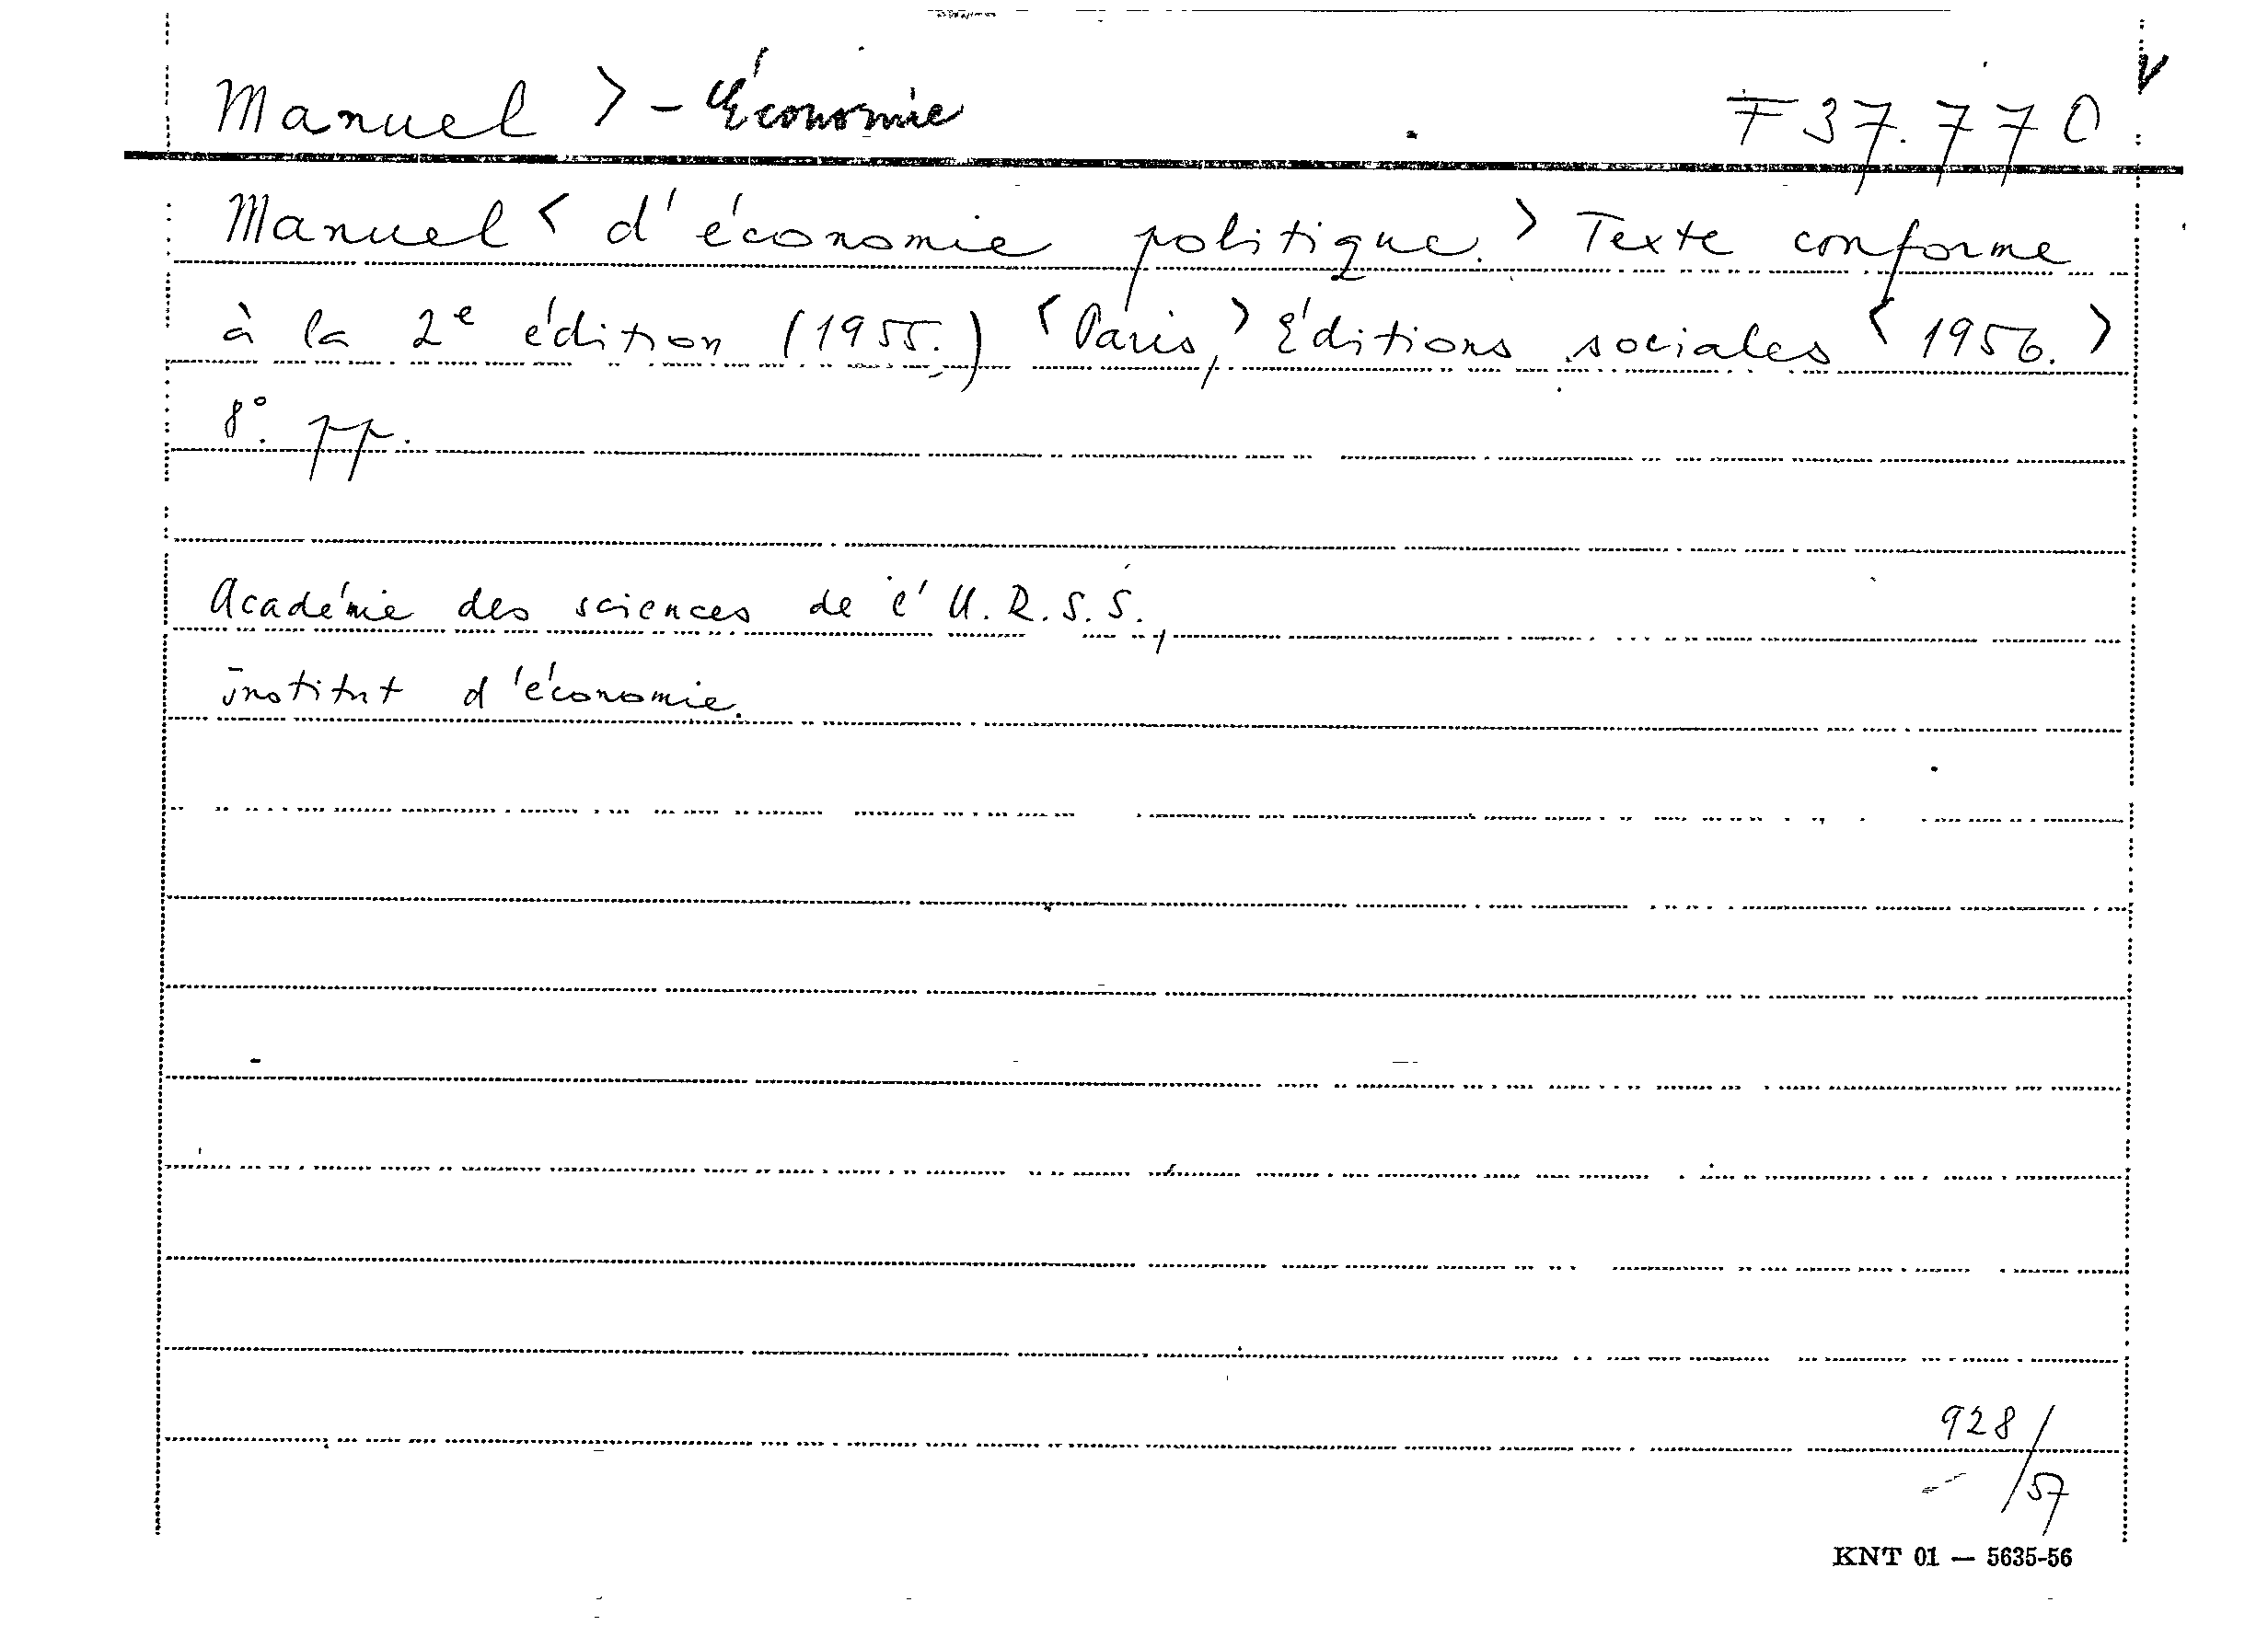 Manuel > - Économie F 37.770 V
Manuel < d'économie politique. > Texte conforme
à la 2e édition (1955.) < Paris, > Éditions sociales < 1956. >
8°. pp.
Académie des sciences de l'U.R.S.S.,
institut d'économie.
928/57
KNT 01 — 5635-56